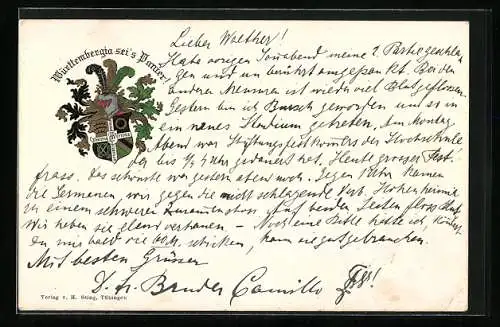 Württembergia sei's Panier!
Lieber Walther!
Habe vorigen Sonnabend meine 2. Partie geschla-
gen und un berührt ausgepaukt. Bei den
anderen Mensuren ist wieder viel Blut geflossen.
Gestern bin ich Bursch geworden und so in
ein neues Stadium getreten. Am Montag
Abend war Stiftungsfestkommers der Hochschule
der bis ½ 4 Uhr gedauert hat. Heute grosser
frass. Das schönste war gestern abend noch. Gegen 1 Uhr kamen
die Germanen von gegen die nicht schlagende Verb. Hohenheimia
zu einem schweren Zusammenstoss. Auf beiden Seiten floss Blut
Wir haben sie elend verhauen. – Noch eine Bitte hätte ich, Könntest
Du mir bald die 60 M. schicken, kann sie gut gebrauchen.
Mit besten Grüssen
D. tr. Bruder Camillo
Verlag v. H. Sting, Tübingen